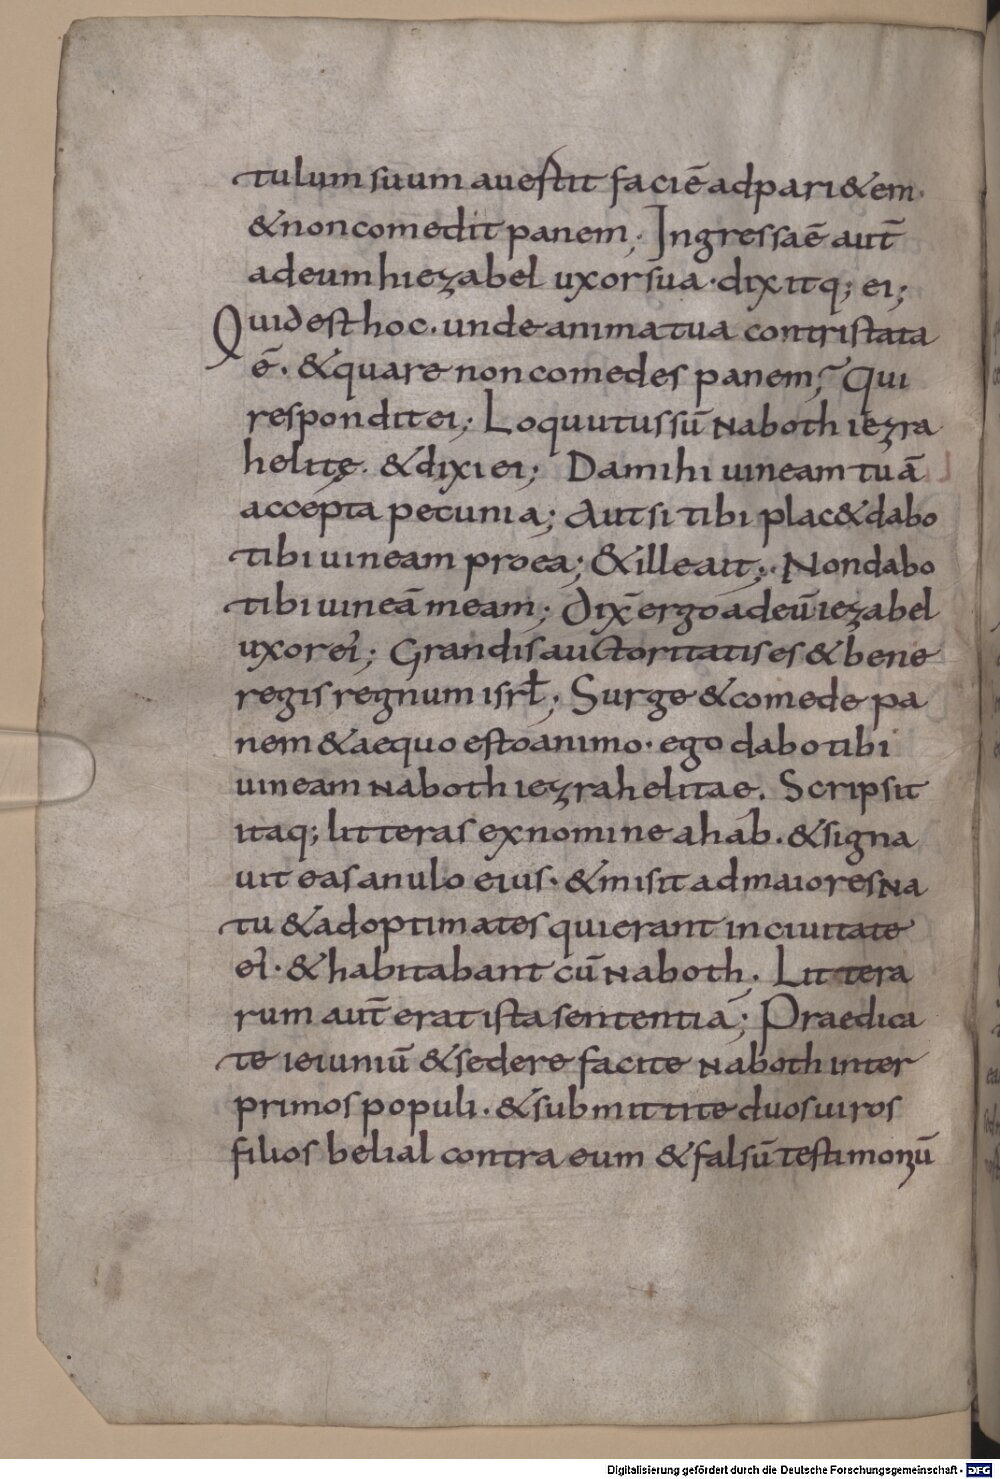 tulum suum auestit faciē ad pari&em.
& non comedit panem; Ingressa ē aut̄
ad eum hiezabel uxor sua · dixitq; ei;
Quid est hoc · unde anima tua contristata
ē · & quare non comedes panem; Qui
respondit ei; Loquutus sū naboth iezra
helitę · & dixi ei; Da mihi uineam tuā
accepta pecunia; Aut si tibi plac& dabo
tibi uineam pro ea; & ille ait; Non dabo
tibi uineā meam; Dix̄ ergo ad eū iezabel
uxor ei; Grandis auctoritatis es & bene
regis regnum isrl; Surge & comede pa
nem & aequo esto animo · ego dabo tibi
uineam naboth iezrahelitae. Scripsit
itaq; litteras ex nomine ahab · & signa
uit eas anulo eius · & misit ad maiores na
tu & ad optimates qui erant in ciuitate
ei · & habitabant cū naboth · Littera
rum aut̄ erat ista sententia; Praedica
te ieiuniū & sedere facite naboth inter
primos populi · & submittite duos uiros
filios belial contra eum & falsū testimoniū
Digitalisierung gefördert durch die Deutsche Forschungsgemeinschaft - DFG